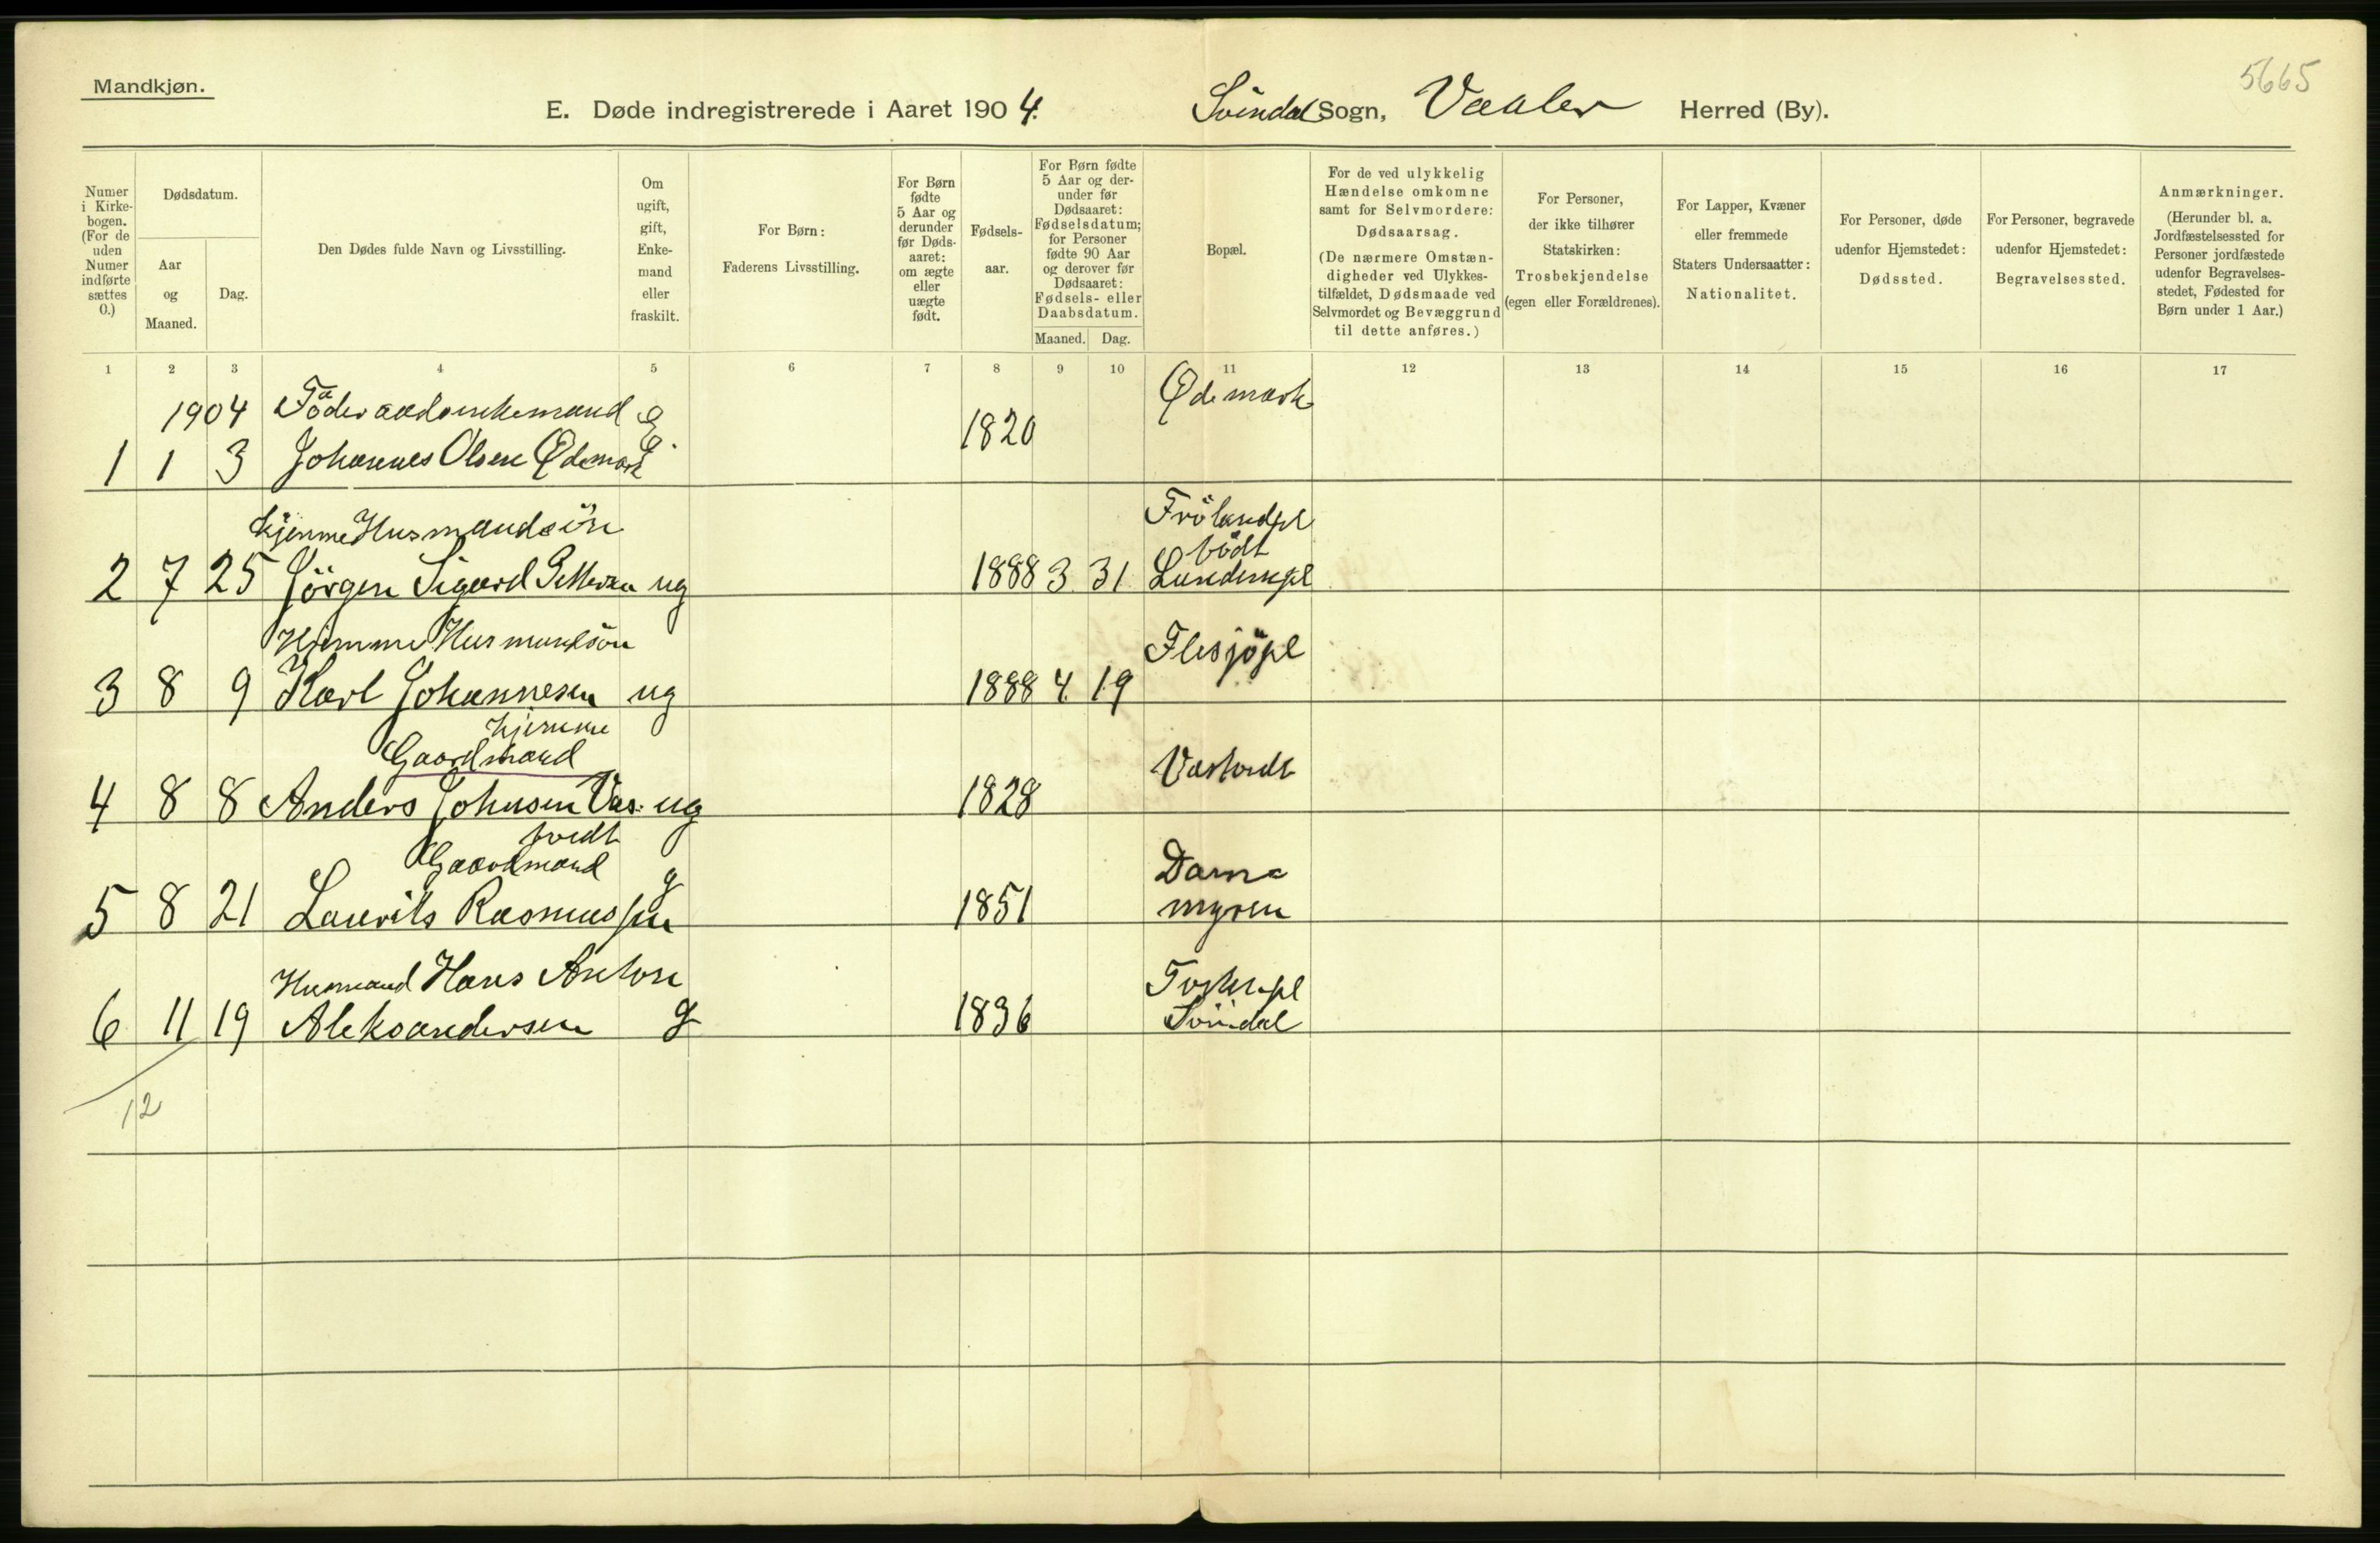 Mandkjøn.
5665
E. Døde indregistrerede i Aaret 1904. Svindal Sogn, Vaaler Herred (By).
Numer i Kirke-bogen. (For de uden Numer indførte sættes 0.)
Dødsdatum.
Aar og Maaned.
Dag.
Den Dødes fulde Navn og Livsstilling.
Om ugift, gift, Enke-mand eller fraskilt.
For Børn: Faderens Livsstilling.
For Børn fødte 5 Aar og derunder før Døds-aaret: om ægte eller uægte født.
Fødsels-aar.
For Børn fødte 5 Aar og der-under før Dødsaaret: Fødselsdatum; for Personer fødte 90 Aar og derover før Dødsaaret: Fødsels- eller Daabsdatum.
Maaned. Dag.
Bopæl.
For de ved ulykkelig Hændelse omkomne samt for Selvmordere: Dødsaarsag.
(De nærmere Omstæn-digheder ved Ulykkes-tilfældet, Dødsmaade ved Selvmordet og Bevæggrund til dette anføres.)
For Personer, der ikke tilhører Statskirken: Trosbekjendelse (egen eller Forældrenes).
For Lapper, Kvæner eller fremmede Staters Undersaatter: Nationalitet.
For Personer, døde udenfor Hjemstedet: Dødssted.
For Personer, begravede udenfor Hjemstedet: Begravelsessted.
Anmærkninger.
(Herunder bl. a. Jordfæstelsessted for Personer jordfæstede udenfor Begravelses-stedet, Fødested for Børn under 1 Aar.)
1 2 3 4 5 6 7 8 9 10 11 12 13 14 15 16 17
1904 Föderaadsenkemand E Ødemark
1 1 3 Johannes Olsen Ødemark E. 1820
hjemme Husmandsön Frölandpl
födt
2 7 25 Jörgen Sigurd ug 1888 3 31 Lundenpl
Hjemme Husmandsön Flesjöpl
3 8 9 Karl Johannesen ug 1888 4 19
hjemme
Gaardmand Vastvedt
4 8 8 Anders Johnsen Vas- ug 1828
tvedt
Gaardmand g Dam-
5 8 21 Laurits Rasmussen 1851 myren
Husmand Hans Anton pl
6 11 19 Aleksandersen g 1836 Svindal
12